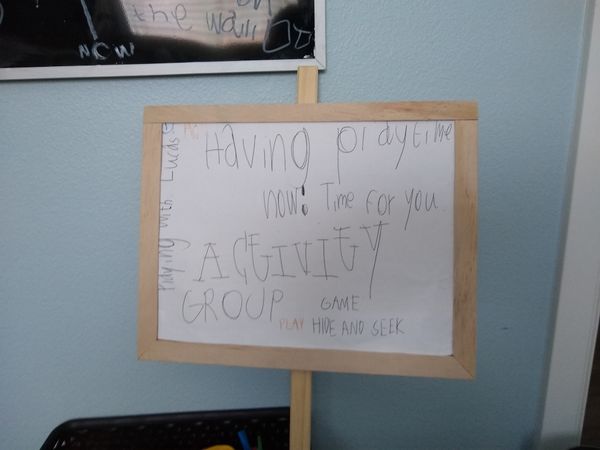 on
the wall
NOW
Playing with Lucas
AG
Having playtime
now! Time for you
ACTIVITY
GROUP GAME
PLAY HIDE AND SEEK